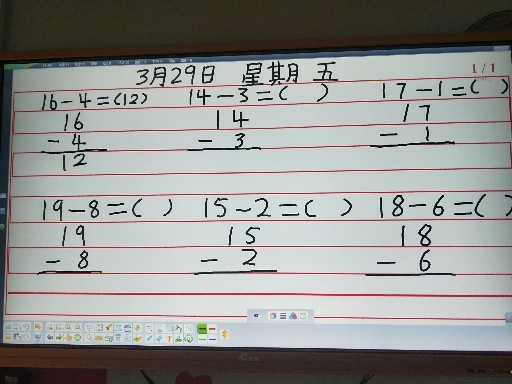 3月29日 星期五
1/1
16-4=(12) 14-3=( ) 17-1=( )
16 14 17
-4 -3 -1
12
19-8=( ) 15-2=( ) 18-6=( )
19 15 18
-8 -2 -6